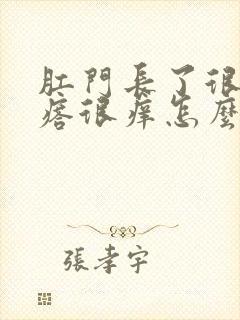 肛門長了很
瘩很痒怎麼
張孝宇